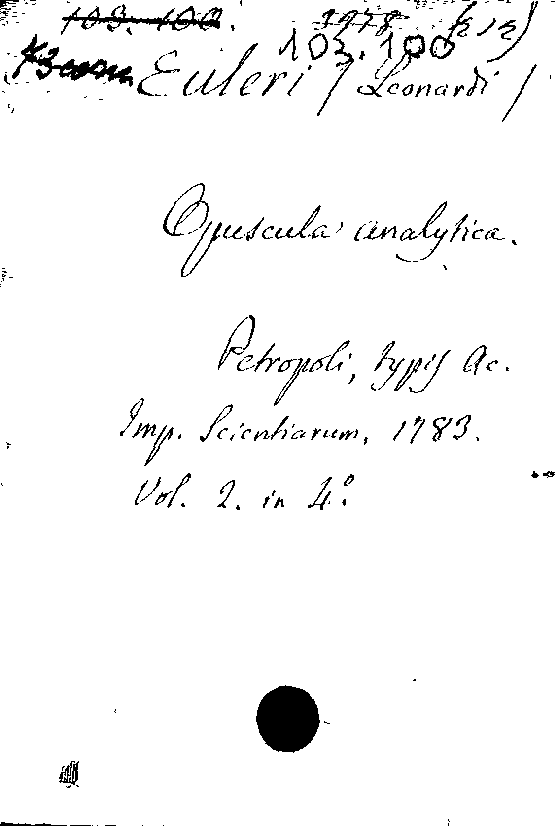 103.100.
103.100
Euleri / Leonardi /
Opuscula analytica.
Petropoli, typis Ac.
Imp. Scientiarum, 1783.
Vol. 2. in 4.º